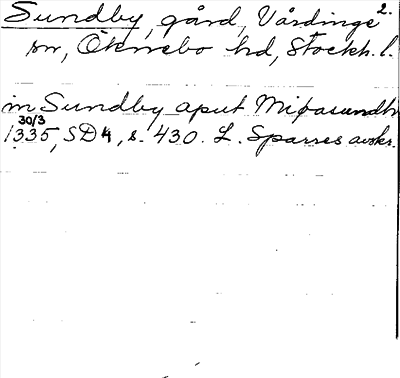 Sundby, gård, Vårdinge 2.
sn, Öknebo hd, Stockh. l.
in Sundby aput Miþasundh
30/3
1335, SD 4, s. 430. L. Sparres avskr.